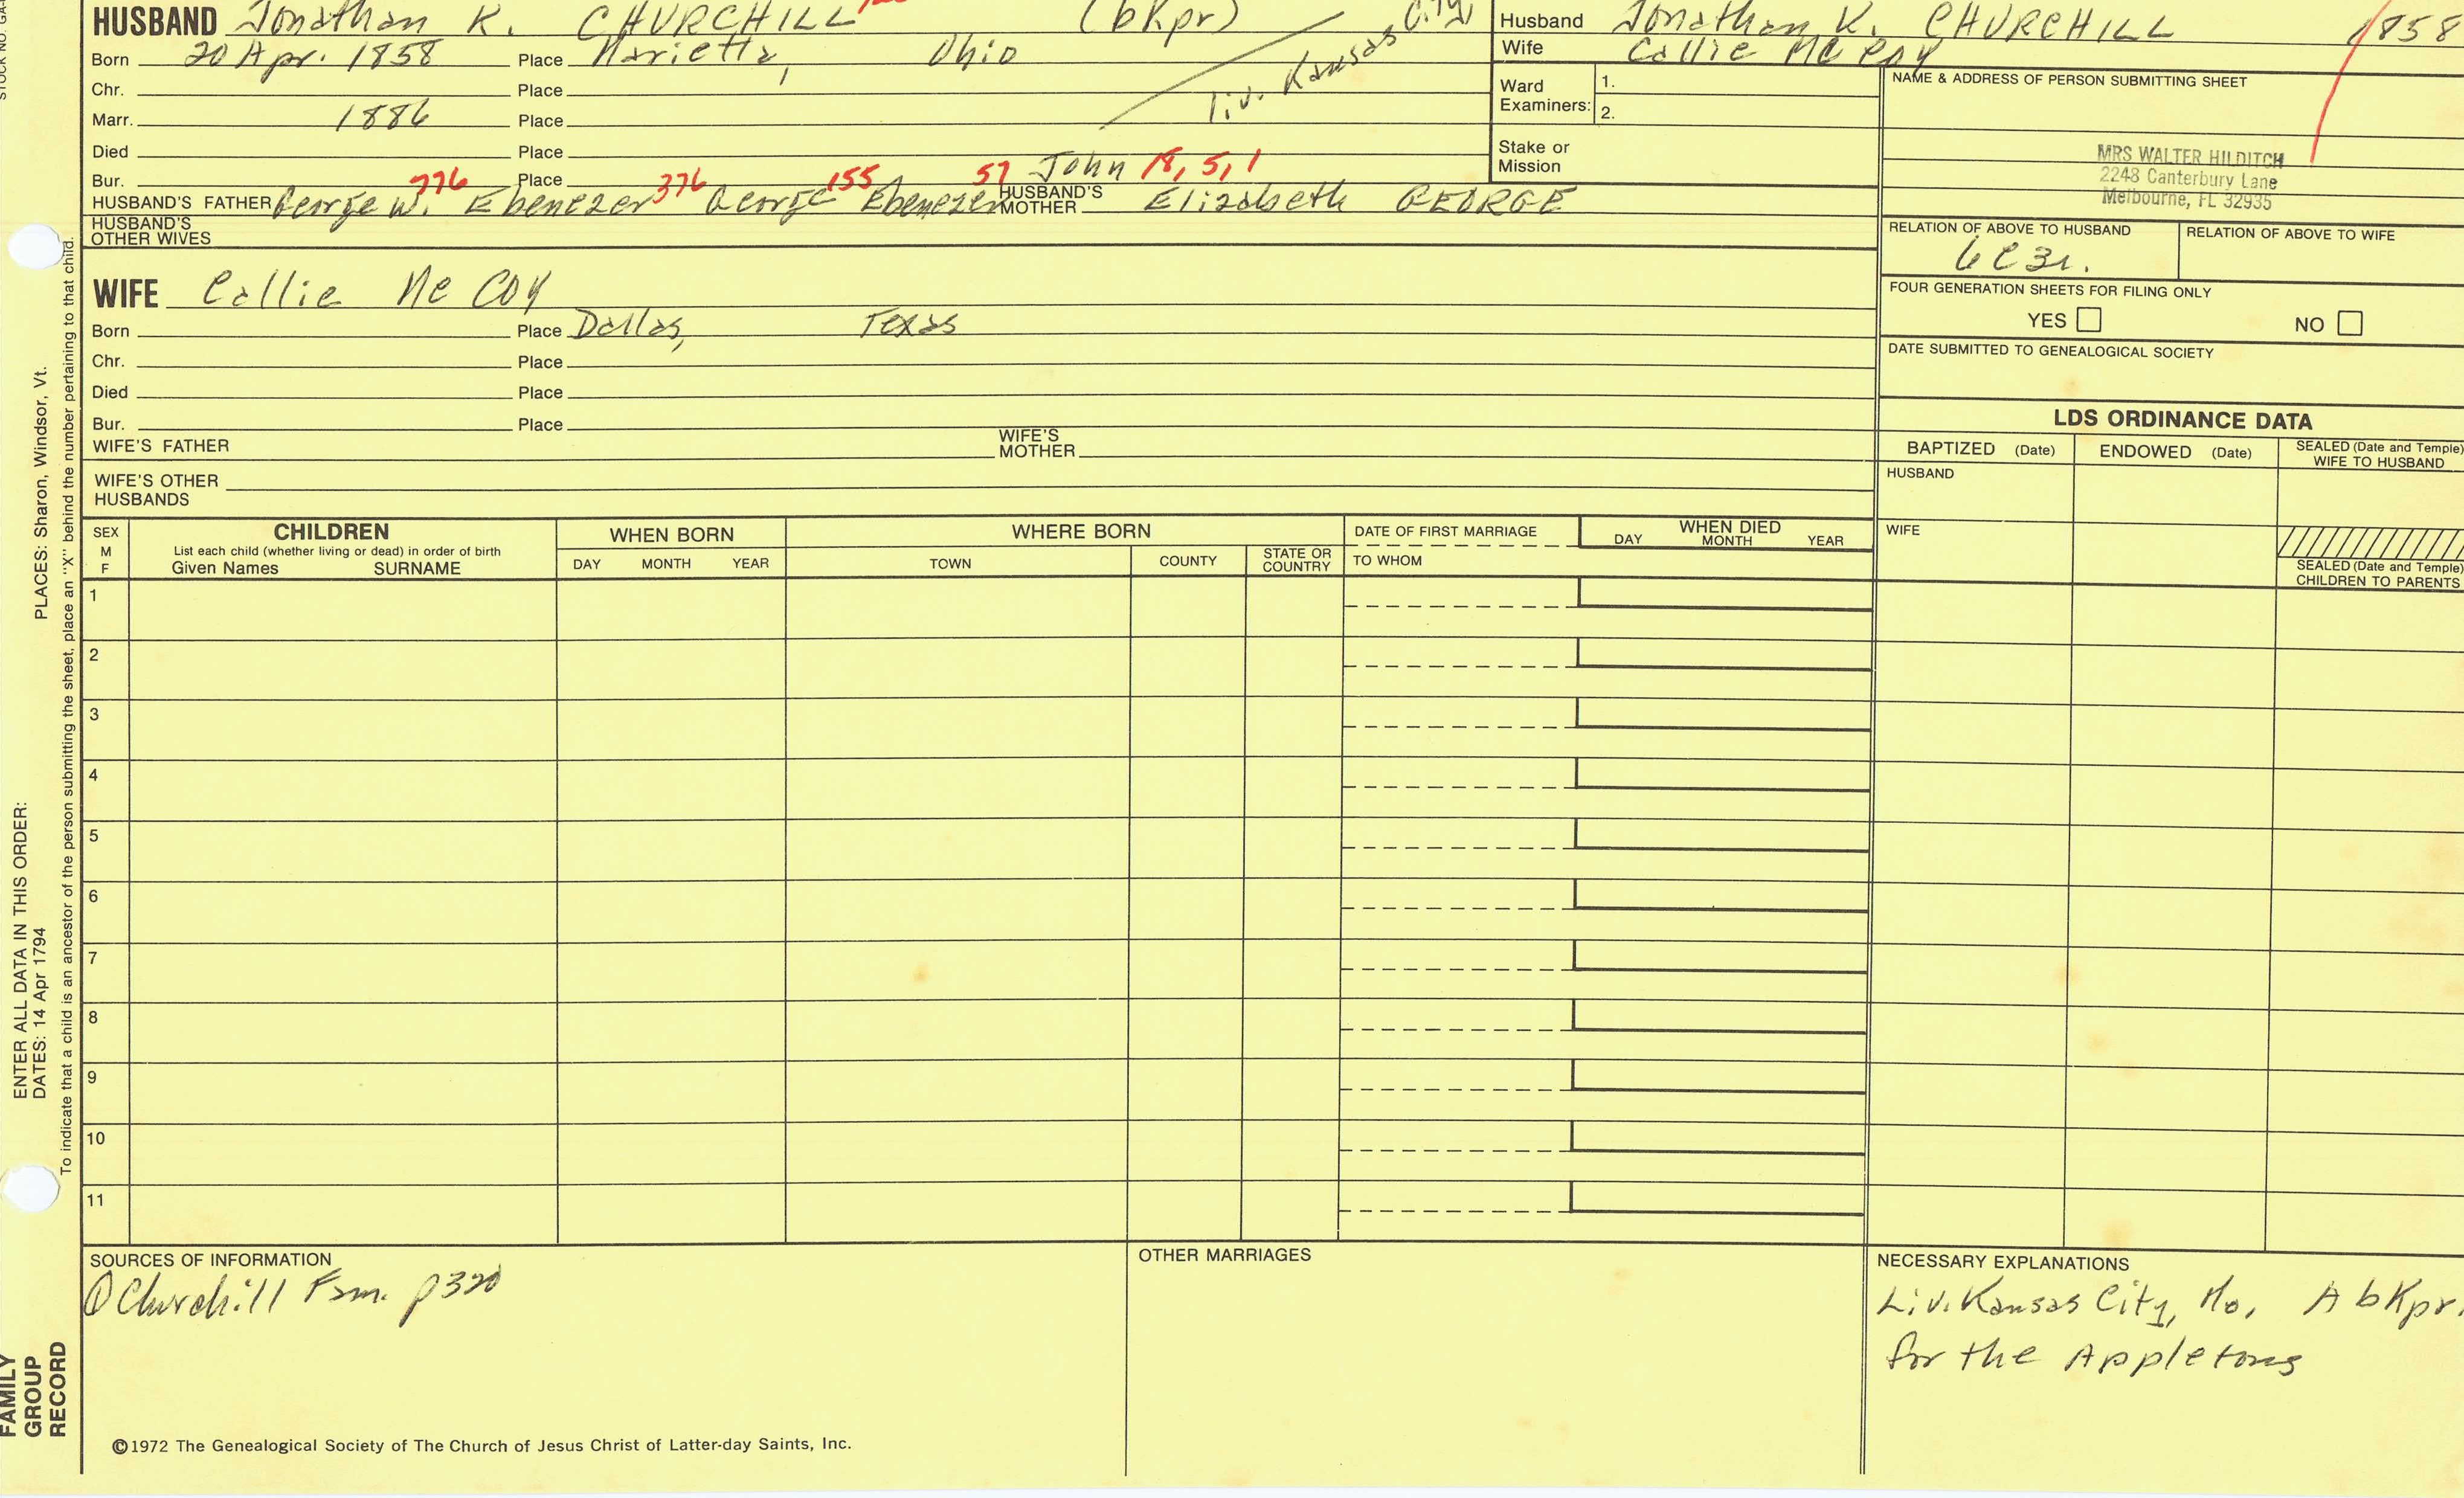 HUSBAND Jonathan K. CHURCHILL (bkpr)
Born 20 Apr. 1858 Place Marietta, Ohio
liv. Kansas City
Chr. Place
Marr. 1886 Place
Died Place
Bur. Place
776 376 155 57 John 18, 5, 1
HUSBAND'S FATHER George W. Ebenezer George Ebenezer HUSBAND'S MOTHER Elizabeth GEORGE
HUSBAND'S OTHER WIVES
Husband Jonathan K. CHURCHILL 1858
Wife Callie Mc Coy
Ward Examiners: 1.
2.
Stake or Mission
NAME & ADDRESS OF PERSON SUBMITTING SHEET
MRS WALTER HILDITCH
2248 Canterbury Lane
Melbourne, FL 32935
RELATION OF ABOVE TO HUSBAND RELATION OF ABOVE TO WIFE
6C3r.
FOUR GENERATION SHEETS FOR FILING ONLY
YES NO
DATE SUBMITTED TO GENEALOGICAL SOCIETY
WIFE Callie Mc Coy
Born Place Dallas, Texas
Chr. Place
Died Place
Bur. Place
WIFE'S FATHER WIFE'S MOTHER
WIFE'S OTHER HUSBANDS
LDS ORDINANCE DATA
BAPTIZED (Date) ENDOWED (Date) SEALED (Date and Temple) WIFE TO HUSBAND
HUSBAND
WIFE
SEALED (Date and Temple) CHILDREN TO PARENTS
SEX M F
CHILDREN
List each child (whether living or dead) in order of birth
Given Names SURNAME
WHEN BORN
DAY MONTH YEAR
WHERE BORN
TOWN COUNTY STATE OR COUNTRY
DATE OF FIRST MARRIAGE
TO WHOM
WHEN DIED
DAY MONTH YEAR
1
2
3
4
5
6
7
8
9
10
11
SOURCES OF INFORMATION
Churchill Fam. p320
OTHER MARRIAGES
NECESSARY EXPLANATIONS
Liv. Kansas City, Mo. A bkpr.
for the Appletons
©1972 The Genealogical Society of The Church of Jesus Christ of Latter-day Saints, Inc.
STOCK NO.
ENTER ALL DATA IN THIS ORDER:
DATES: 14 Apr 1794 PLACES: Sharon, Windsor, Vt.
To indicate that a child is an ancestor of the person submitting the sheet, place an "X" behind the number pertaining to that child.
FAMILY
GROUP
RECORD